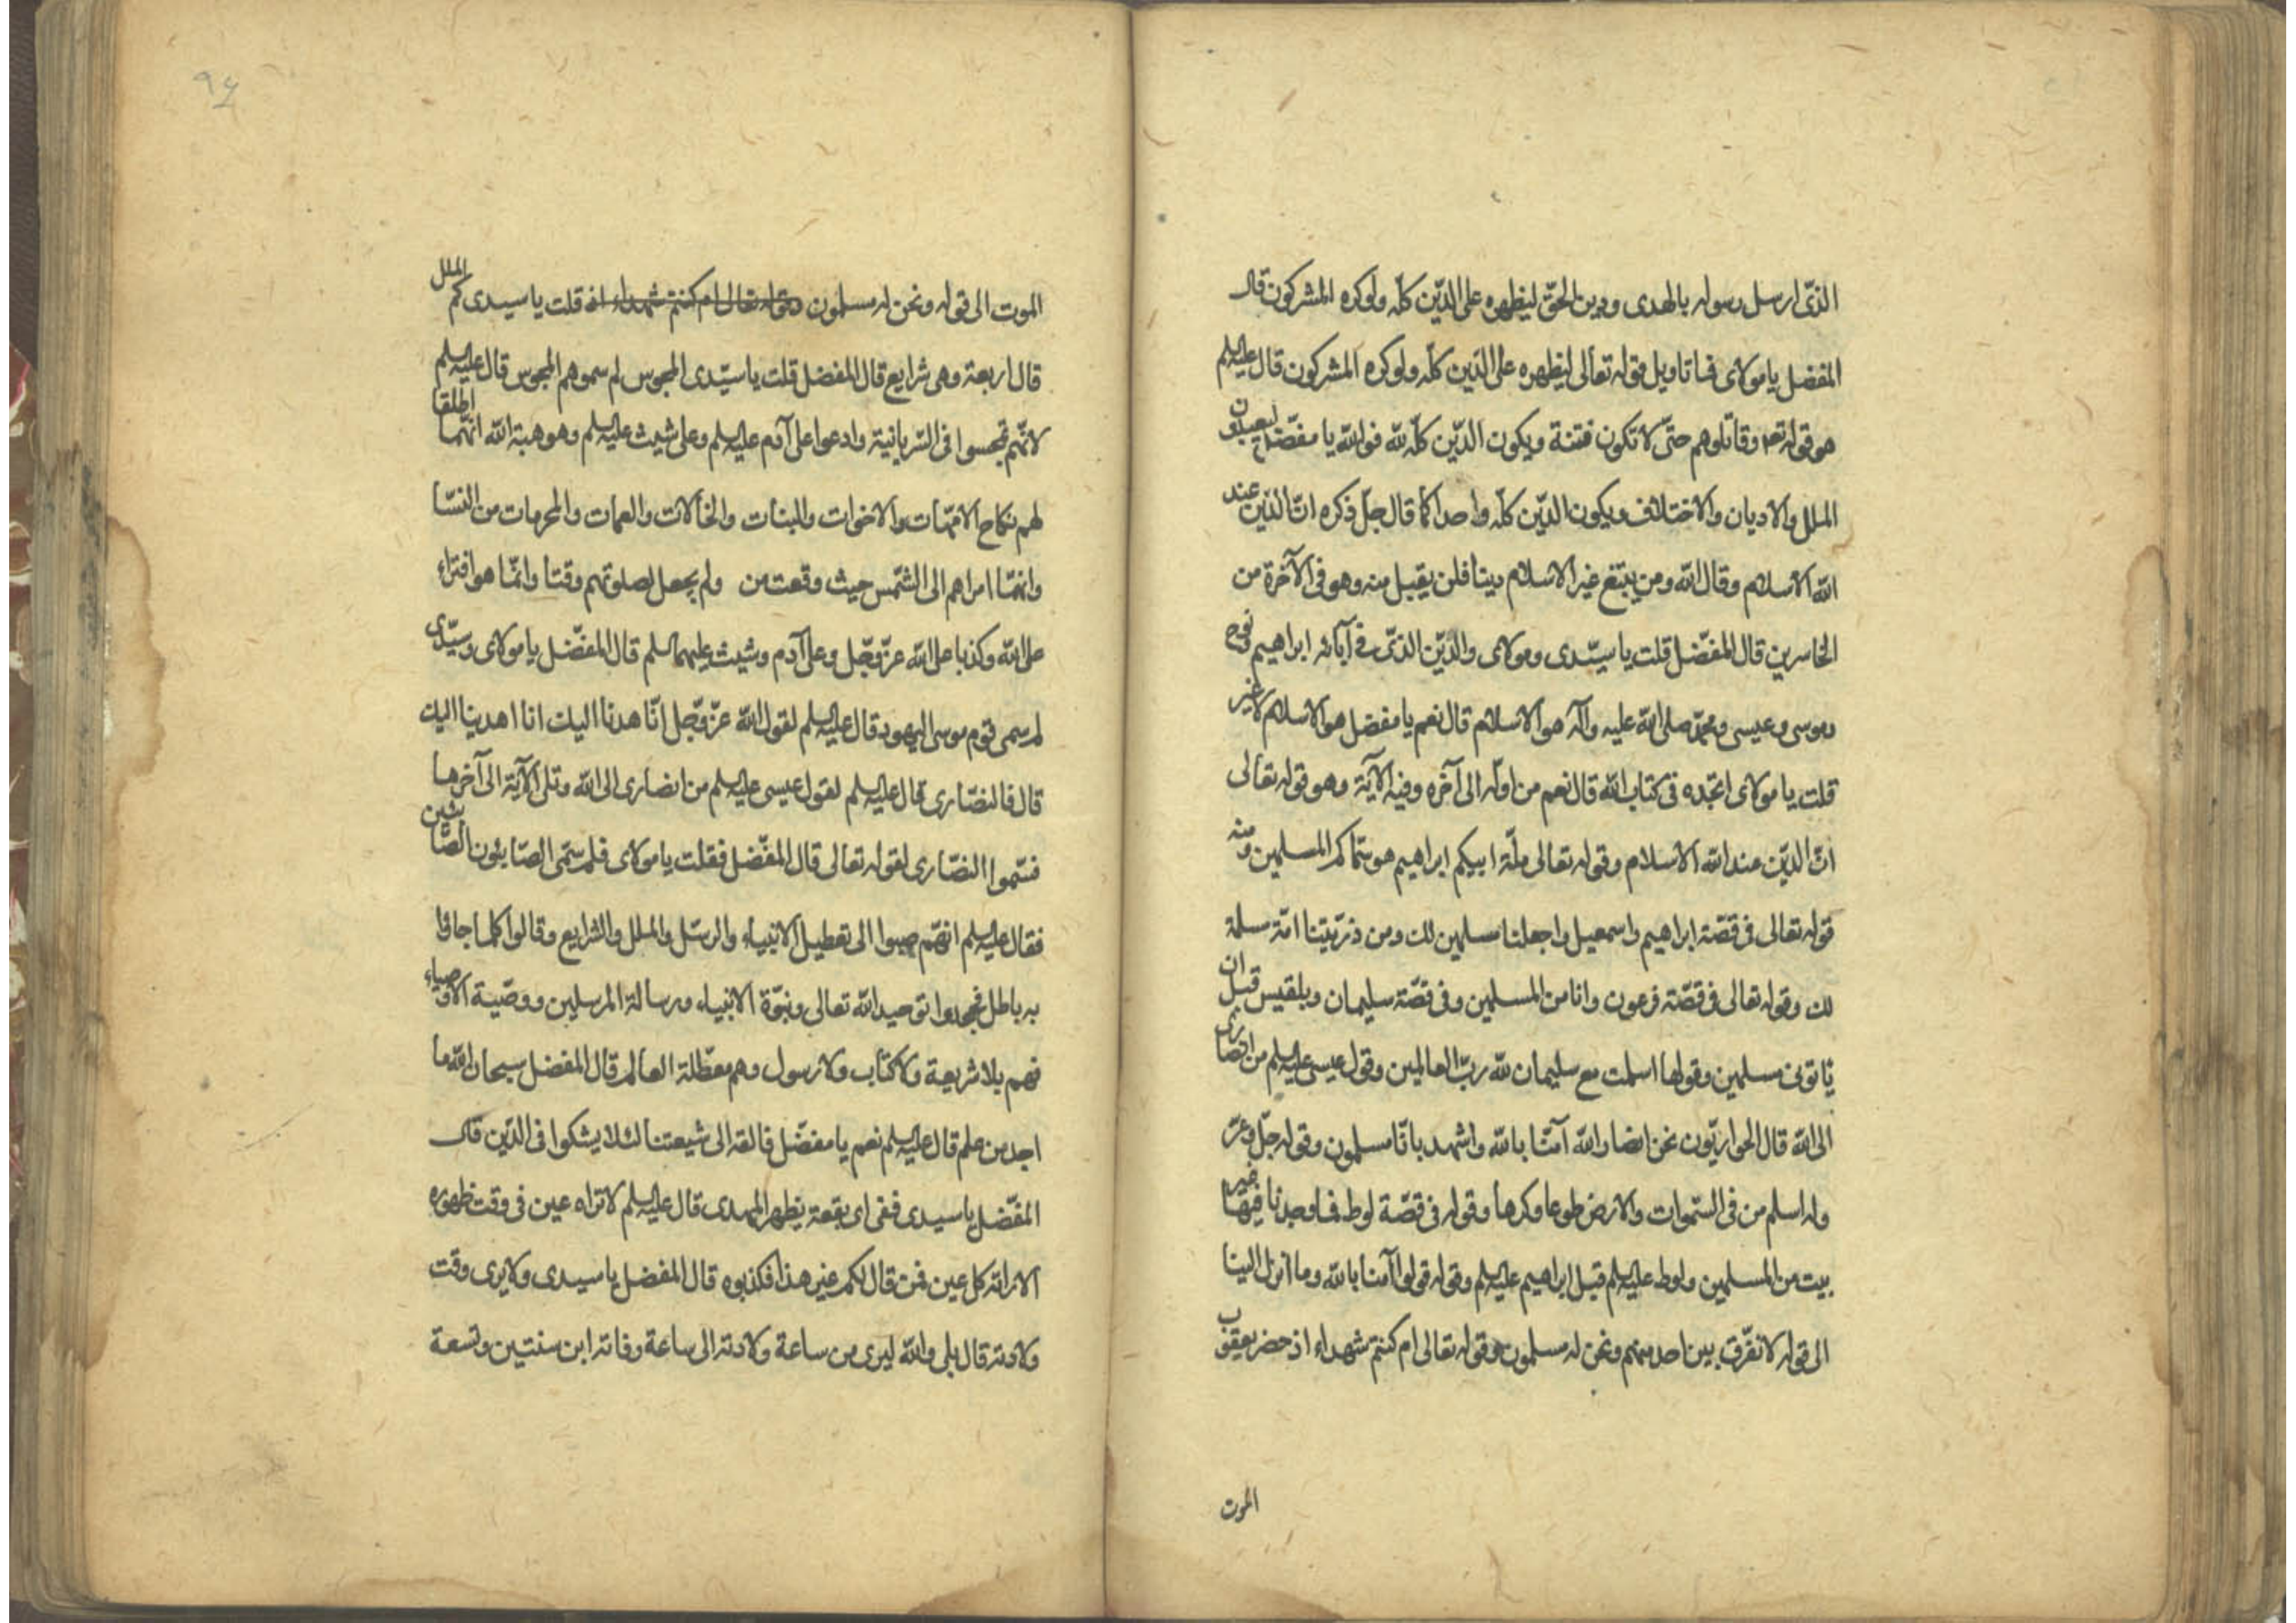 الذّی ارسل رسوله بالهدی ودین الحقّ لیظهره علی الدّین کلّه ولوکره المشرکون قال
المفضل یا مولای فما تاویل قوله تعالی لیظهره علی الدّین کلّه ولوکره المشرکون قال علیه السلم
هو قوله تعه وقاتلوهم حتّی لا تکون فتنة ویکون الدّین کلّه لله فوالله یا مفضّل
الملل والادیان والاختلاف ویکون الدّین کلّه واحدا کما قال جلّ ذکره انّ الدّین عند
الله الاسلام وقال الله ومن یبتغ غیر الاسلام دینا فلن یقبل منه وهو فی الآخرة من
الخاسرین قال المفضّل قلت یا سیّدی ومولای والدّین الذّی فی آبائه ابراهیم ونوح
وموسی وعیسی ومحمّد صلی الله علیه وآله هو الاسلام قال نعم یا مفضل هو الاسلام لا غیر
قلت یا مولای اتجده فی کتاب الله قال نعم من اوله الی آخره وفیه الآیة وهو قوله تعالی
انّ الدّین عند الله الاسلام وقوله تعالی ملّة ابیکم ابراهیم هو سمّاکم المسلمین ومنه
قوله تعالی فی قصّة ابراهیم واسمعیل واجعلنا مسلمین لك ومن ذرّیّتنا امّة مسلمة
لك وقوله تعالی فی قصّة فرعون وانا من المسلمین وفی قصّة سلیمان وبلقیس قبل ان
یاتونی مسلمین وقولها اسلمت مع سلیمان لله ربّ العالمین وقول عیسی علیه السلم من انصاری
الی الله قال الحواریّون نحن انصار الله آمنّا بالله واشهد بانّا مسلمون وقوله جلّ وعزّ
وله اسلم من فی السّموات والارض طوعا وکرها وقوله فی قصّة لوط فما وجدنا فیها غیر
بیت من المسلمین ولوط علیه السلم قبل ابراهیم علیه السلم وقوله قولوا آمنا بالله وما انزل الینا
الی قوله لا نفرّق بین احد منهم ونحن له مسلمون وقوله تعالی ام کنتم شهداء اذ حضر یعقوب
الموت
۹۴
الموت الی قوله ونحن له مسلمون وقوله تعالی ام کنتم شهداء قلت یا سیدی کم الملل
قال اربعة وهی شرایع قال المفضل قلت یا سیّدی المجوس لم سموهم المجوس قال علیه السلم
لانّهم تمجسوا فی السّریانیة وادعوا علی آدم علیه السلم وعلی شیث علیه السلم وهو هبة الله انّهما اطلقا
لهم نکاح الامّهات والاخوات والبنات والخالات والعمات والمحرمات من النسّا
وانهمّا امراهم الی الشّمس حیث وقعت من ولم یجعل لصلوتهم وقتا وانمّا هو افتراء
علی الله وکذبا علی الله عزّ وجّل وعلی آدم وشیث علیهما السلم قال المفضّل یا مولای وسیّدی
لم سمی قوم موسی الیهود قال علیه السلم لقول الله عزّ وجّل انّا هدنا الیك انا اهدینا الیك
قال فالنصّاری قال علیه السلم لقول عیسی علیه السلم من انصاری الی الله وتلی الآیة الی آخرها
فسّموا النصّاری لقوله تعالی قال المفضّل فقلت یا مولای فلم سمّی الصّابئون الصّابئین
فقال علیه السلم انهّم صبوا الی تعطیل الانبیاء والرسّل والملل والشرایع وقالوا کلما جاؤا
به باطل فجحدوا توحید الله تعالی ونبوّة الانبیاء ورسالة المرسلین ووصّیة الاوصیاء
فهم بلا شریعة ولا کتاب ولا رسول وهم معطّلة العالم قال المفضل سبحان الله ما
اجد من علم قال علیه السلم نعم یا مفضّل فالقه الی شیعتنا لئلا یشکوا فی الدّین قال
المفضّل یا سیدی ففی ای بقعة یظهر المهدی قال علیه السلم لا تراه عین فی وقت ظهوره
الا راته کل عین فمن قال لکم غیر هذا فکذبوه قال المفضل یا سیدی ولا یری وقت
ولادته قال بلی والله لیری من ساعة ولادته الی ساعة وفاته ابن سنتین وتسعة